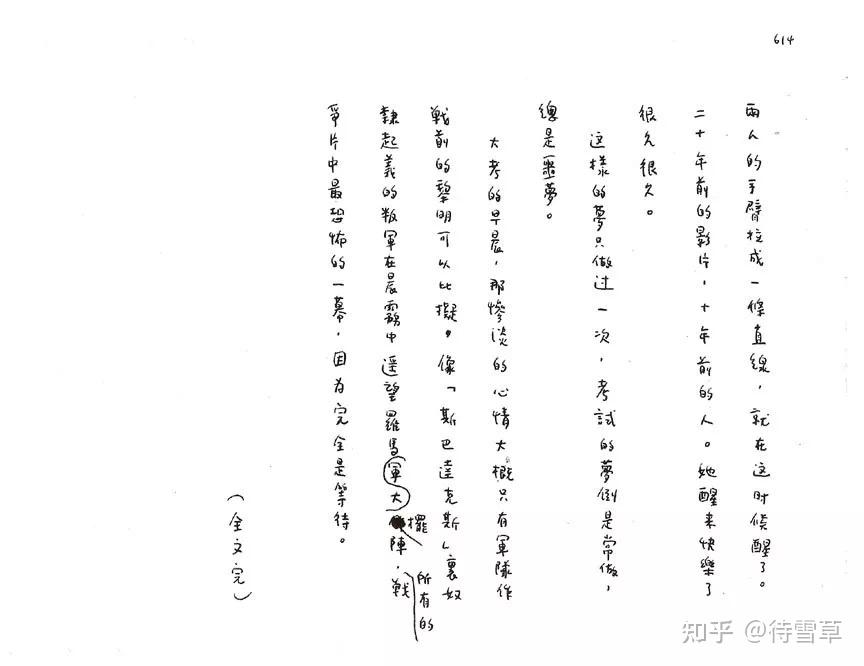 614
兩人的手臂拉成一條直線，就在这时候醒了。
二十年前的影片，十年前的人。她醒来快樂了
很久很久。
这樣的夢只做过一次，考試的夢倒是常做，
總是噩夢。
大考的早晨，那慘淡的心情大概只有軍隊作
戰前的黎明可以比擬。像「斯巴達克斯」裏奴
隸起義的叛軍在晨霧中遥望羅馬軍大擺陣，所有的戰
爭片中最恐怖的一幕，因为完全是等待。
（全文完）
知乎 @待雪草